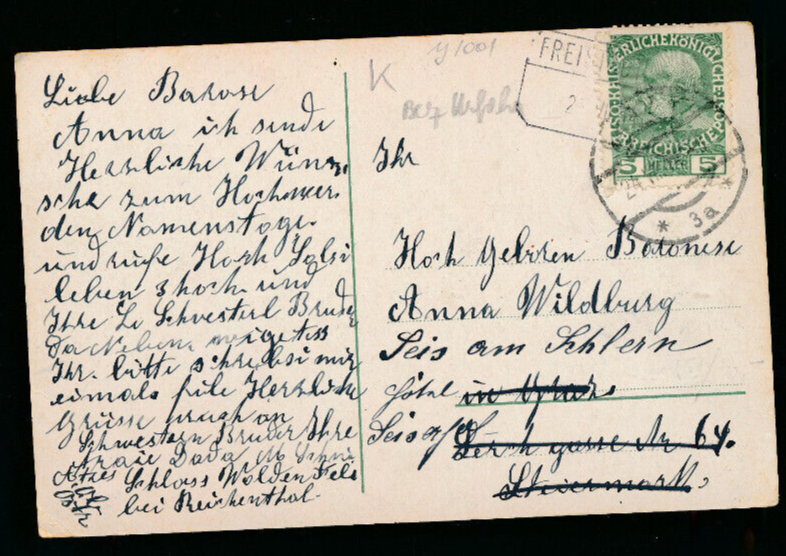 Liebe Barose
Anna ich sende
Herzliche Wün
sche zum Hochwer
den Namenstage
und rufe Hoch Solsi
leben 3 hoch und
Ihre Schvesterl Bruder
Ihr bitte schreibsi mir
einmals file Herzliche
Grüsse auch an
Schwestern Bruder Ihre
Dada
Schloss Waldenfels
bei Reichenthal.
K
y/001
FREIS
KAISERLICHEKÖNIGLICHE
ÖSTERREICHISCHE
5 HELLER 5
24
* 3a *
Ihr
Hoch Geboren Baronese
Anna Wildburg
Seis am Schlern
Hotel in Graz.
Seis
Lerchgasse Nr 64.
Steiermark.